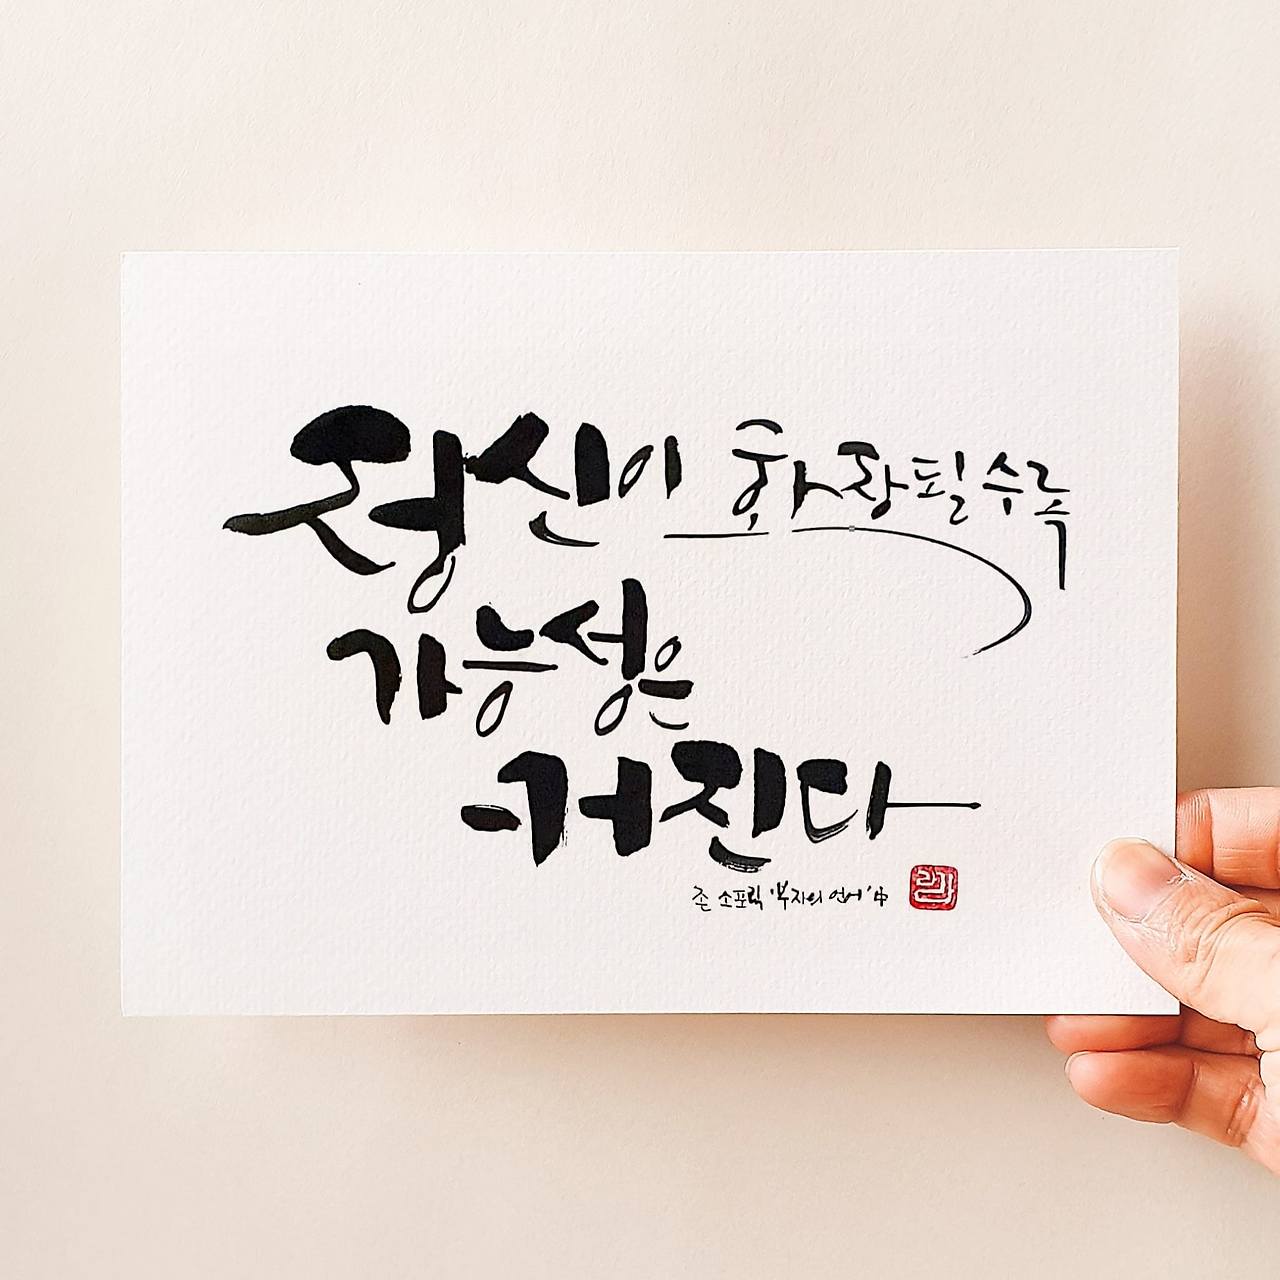 정신이 확장될수록
가능성은
커진다
존 소포릭 '부자의 언어' 中